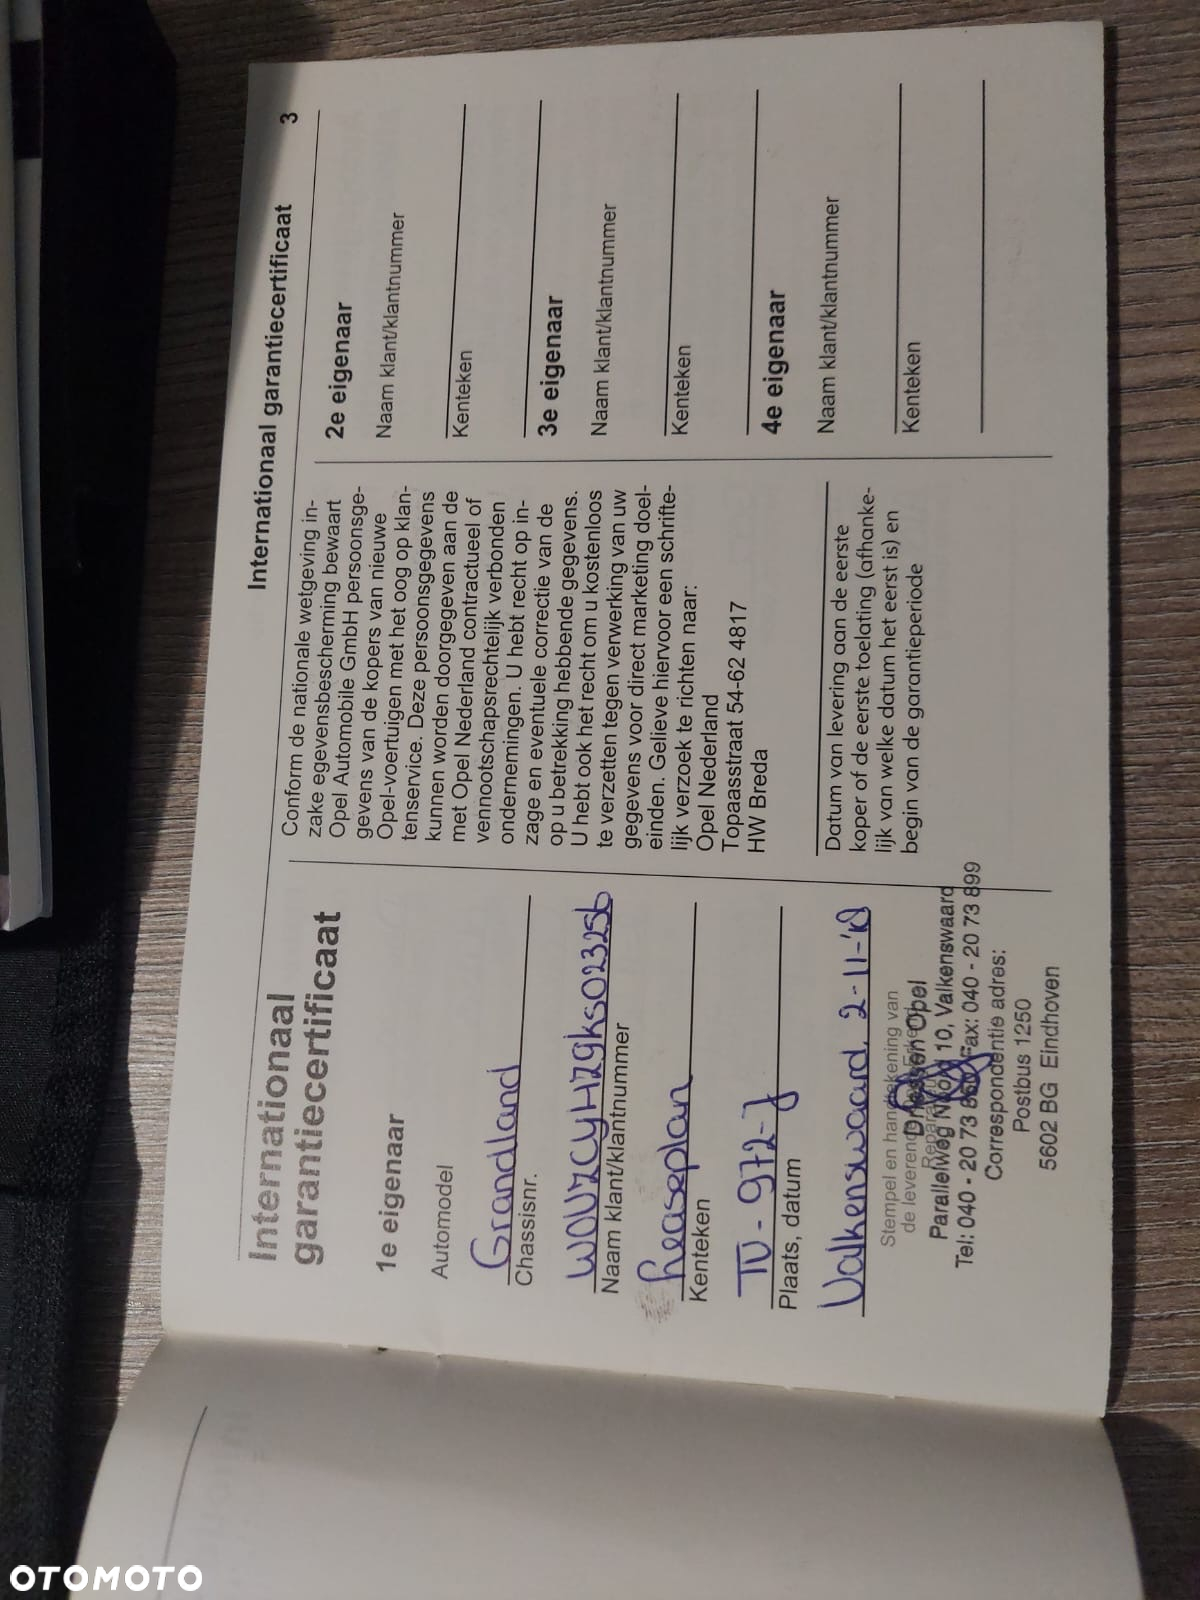 Internationaal garantiecertificaat 3
Internationaal
garantiecertificaat
1e eigenaar
Automodel
Grandland
Chassisnr.
W0VZCYHZ9KS023256
Naam klant/klantnummer
Leaseplan
Kenteken
TV-972-J
Plaats, datum
Valkenswaard, 2-11-'18
Stempel en handtekening van
de leverende
Driessen Opel
Parallelweg Noord 10, Valkenswaard
Tel: 040 - 20 73 Fax: 040 - 20 73 899
Correspondentie adres:
Postbus 1250
5602 BG Eindhoven
Conform de nationale wetgeving in-
zake egevensbescherming bewaart
Opel Automobile GmbH persoonsge-
gevens van de kopers van nieuwe
Opel-voertuigen met het oog op klan-
tenservice. Deze persoonsgegevens
kunnen worden doorgegeven aan de
met Opel Nederland contractueel of
vennootschapsrechtelijk verbonden
ondernemingen. U hebt recht op in-
zage en eventuele correctie van de
op u betrekking hebbende gegevens.
U hebt ook het recht om u kostenloos
te verzetten tegen verwerking van uw
gegevens voor direct marketing doel-
einden. Gelieve hiervoor een schrifte-
lijk verzoek te richten naar:
Opel Nederland
Topaasstraat 54-62 4817
HW Breda
Datum van levering aan de eerste
koper of de eerste toelating (afhanke-
lijk van welke datum het eerst is) en
begin van de garantieperiode
2e eigenaar
Naam klant/klantnummer
Kenteken
3e eigenaar
Naam klant/klantnummer
Kenteken
4e eigenaar
Naam klant/klantnummer
Kenteken
OTOMOTO